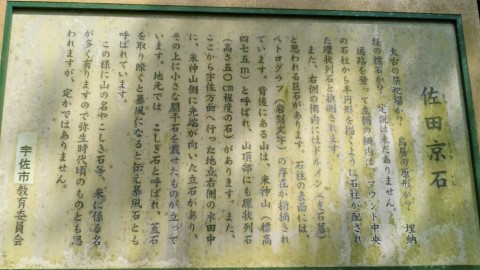 佐田京石
太古の祭祀場か？　鳥居の原形か？　埋納
経の標石か？　定説は未だありません。
通路を登って左側の柵内は、マウンド中央
の石柱から半円形を描くように石柱が配され
た環状列石と推測されます。
また、右側の柵内にはドルメン（支石墓）
と思われる巨石があります。石柱の表面には、
ペトログラフ（岩刻文字）の存在が指摘され
ています。背後にある山は、米神山（標高
四七五ｍ）と呼ばれ、山頂部にも環状列石
（高さ五〇㎝程度の石）があります。また、
ここから宇佐方面へ行った地点右側の水田中
に、米神山側に先端が向いた立石があり、
その上に小さな扁平石を載せたものが立って
います。地元では、こしき石と呼ばれ、蓋石
を取り除くと暴風になると伝え暴風石とも
呼ばれています。
この様に山の名やこしき石等、米に係る名
が多く有りますので弥生時代頃のものとも思
われますが、定かではありません。
宇佐市教育委員会